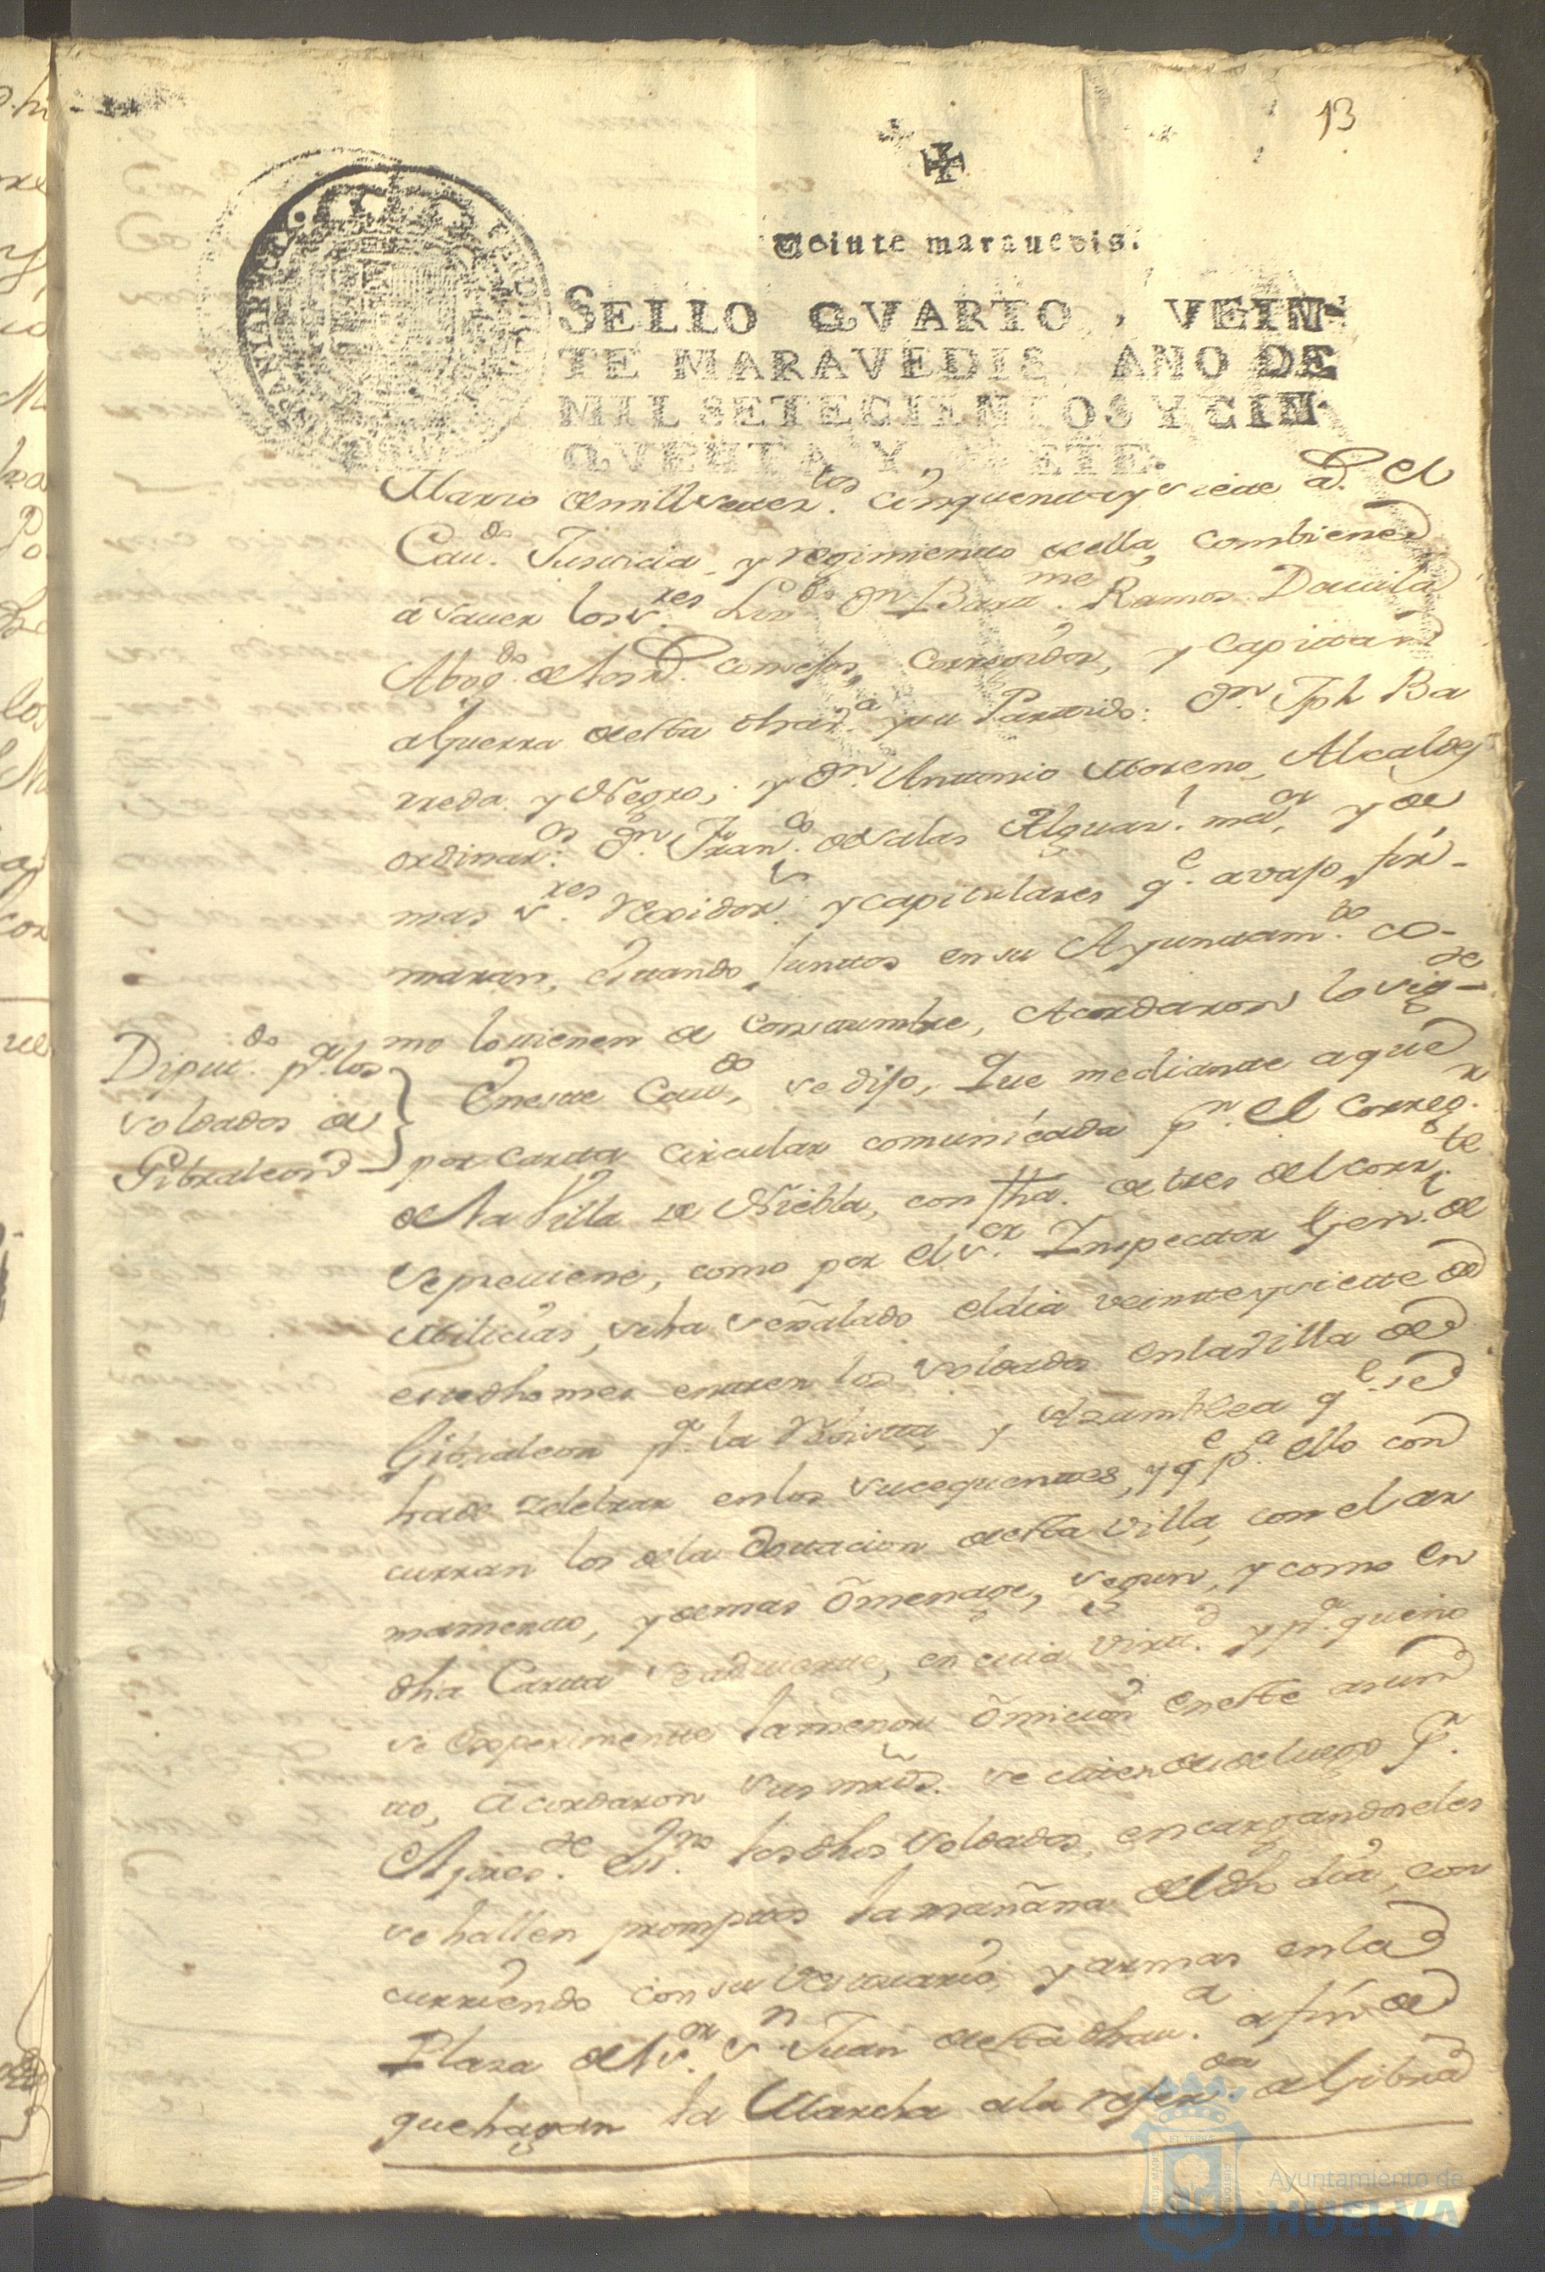 13
Veinte marauedis.
SELLO QVARTO, VEIN-
TE MARAVEDIS, AÑO DE
MIL SETECIENTOS Y CIN-
QVENTA Y SIETE.
Marzo de mill setez.tos cinquenta y siete a.s el
Cau.do Justicia, y regimiento de ella, combiene
a sauer los s.res Liz.do Dn Barm.me Ramos Dauila
Abog.do de los R.s consejos, Corregidor, y capitan
a Guerra de esta dha v.a y su Partido: Dn Jph Ba
rreda y Negro, y Dn Antonio Moreno, Alcaldes
ordinar.os Dn Fran.co de Salas Alguas.l ma.or y de
mas s.res Rexidor.s y capitulares q.e avajo fir-
maran, estando juntos en su Ayuntam.to co-
mo lo tienen de costumbre, Acordaron lo sig.te
Diput.do p.a los
soldados de
Gibraleon
En este Cau.do se dijo, Que mediante a que
por carta circular comunicada p.r el Correg.r
de la Villa de Niebla, con fha. de tres del corr.te
se preuiene, como por el s.or Inspector Gen.l de
Milicias, se ha señalado el dia veinte y siete de
este dho mes entren los soldados en la Villa de
Gibraleon p.a la Revista y Azamblea q.e se
ha de zelebrar en los sucequentes, y q.e p.a ello con
curran los de la dotacion de esta villa, con el ar
mamento, y demas omenage, segun, y como en
dha Carta se aduierte, en cuia virtd. y p.a que no
se experimente la menor omicion en este asun
to, acordaron sus mrds. se citen desde luego p.r
Ante el press.te es.no los dhos soldados, encargandoseles
se hallen promptos la mañana del dho dia, con
curriendo con su vestuario, y armas en la
Plaza del s.or S.n Juan de esta dha v.a a fin de
que hagan la Marcha a la refer.da de Gibra
Ayuntamiento de
HUELVA